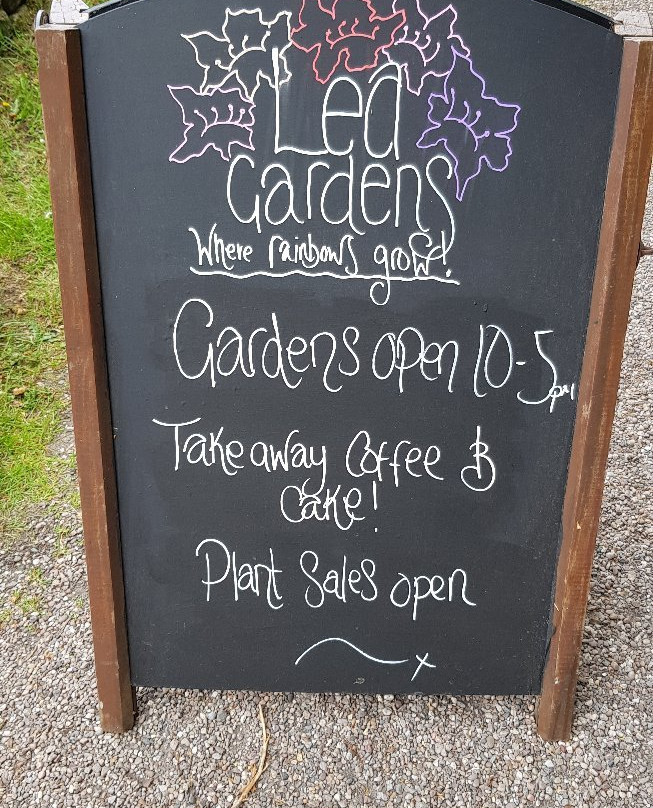 Lea
Gardens
Where rainbows grow!
Gardens open 10-5pm
Takeaway Coffee &
Cake!
Plant Sales open
x